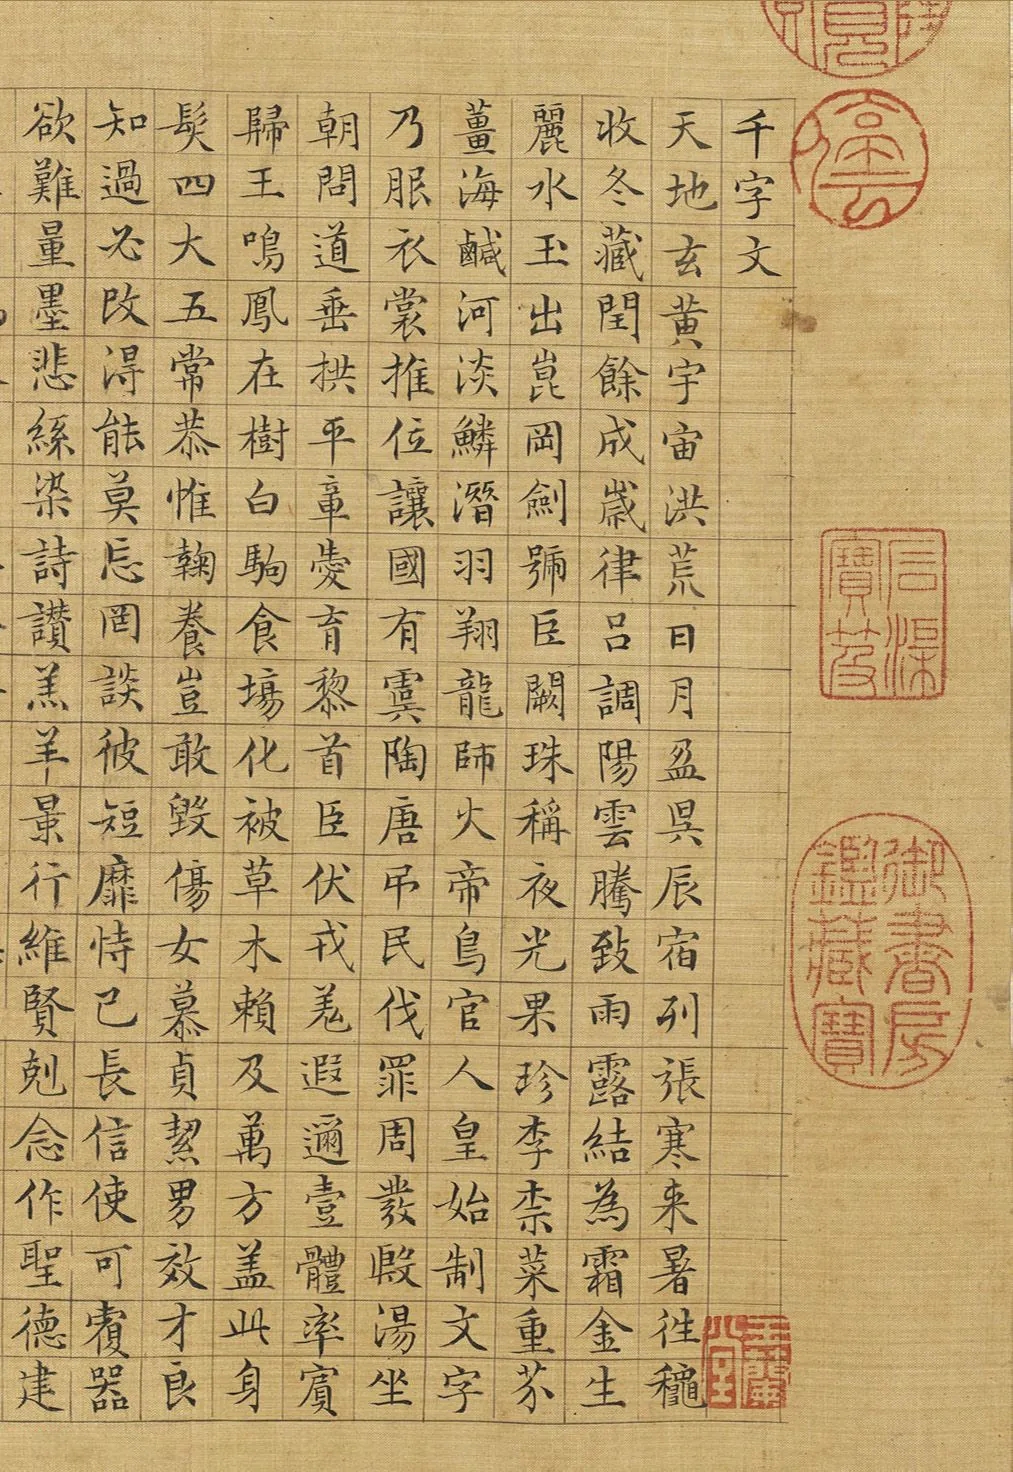 御書房鑑藏寶
石渠寶笈
千字文
天地玄黄宇宙洪荒日月盈昃辰宿列張寒来暑往穐
收冬藏閏餘成歲律吕調陽雲騰致雨露結為霜金生
麗水玉出崑岡劍號臣闕珠稱夜光果珍李柰菜重芥
薑海鹹河淡鱗潛羽翔龍師火帝鳥官人皇始制文字
乃服衣裳推位讓國有虞陶唐吊民伐罪周發殷湯坐
朝問道垂拱平章愛育黎首臣伏戎羌遐邇壹體率賓
歸王鳴鳳在樹白駒食場化被草木賴及萬方盖此身
髮四大五常恭惟鞠養豈敢毀傷女慕貞絜男效才良
知過必改得能莫忘罔談彼短靡恃己長信使可覆器
欲難量墨悲絲染詩讃羔羊景行維賢剋念作聖德建